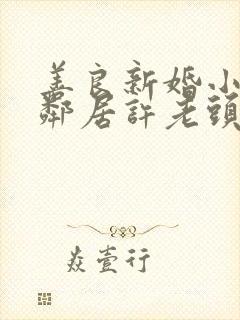 美良新婚小
鄰居許老頭
焱壹行